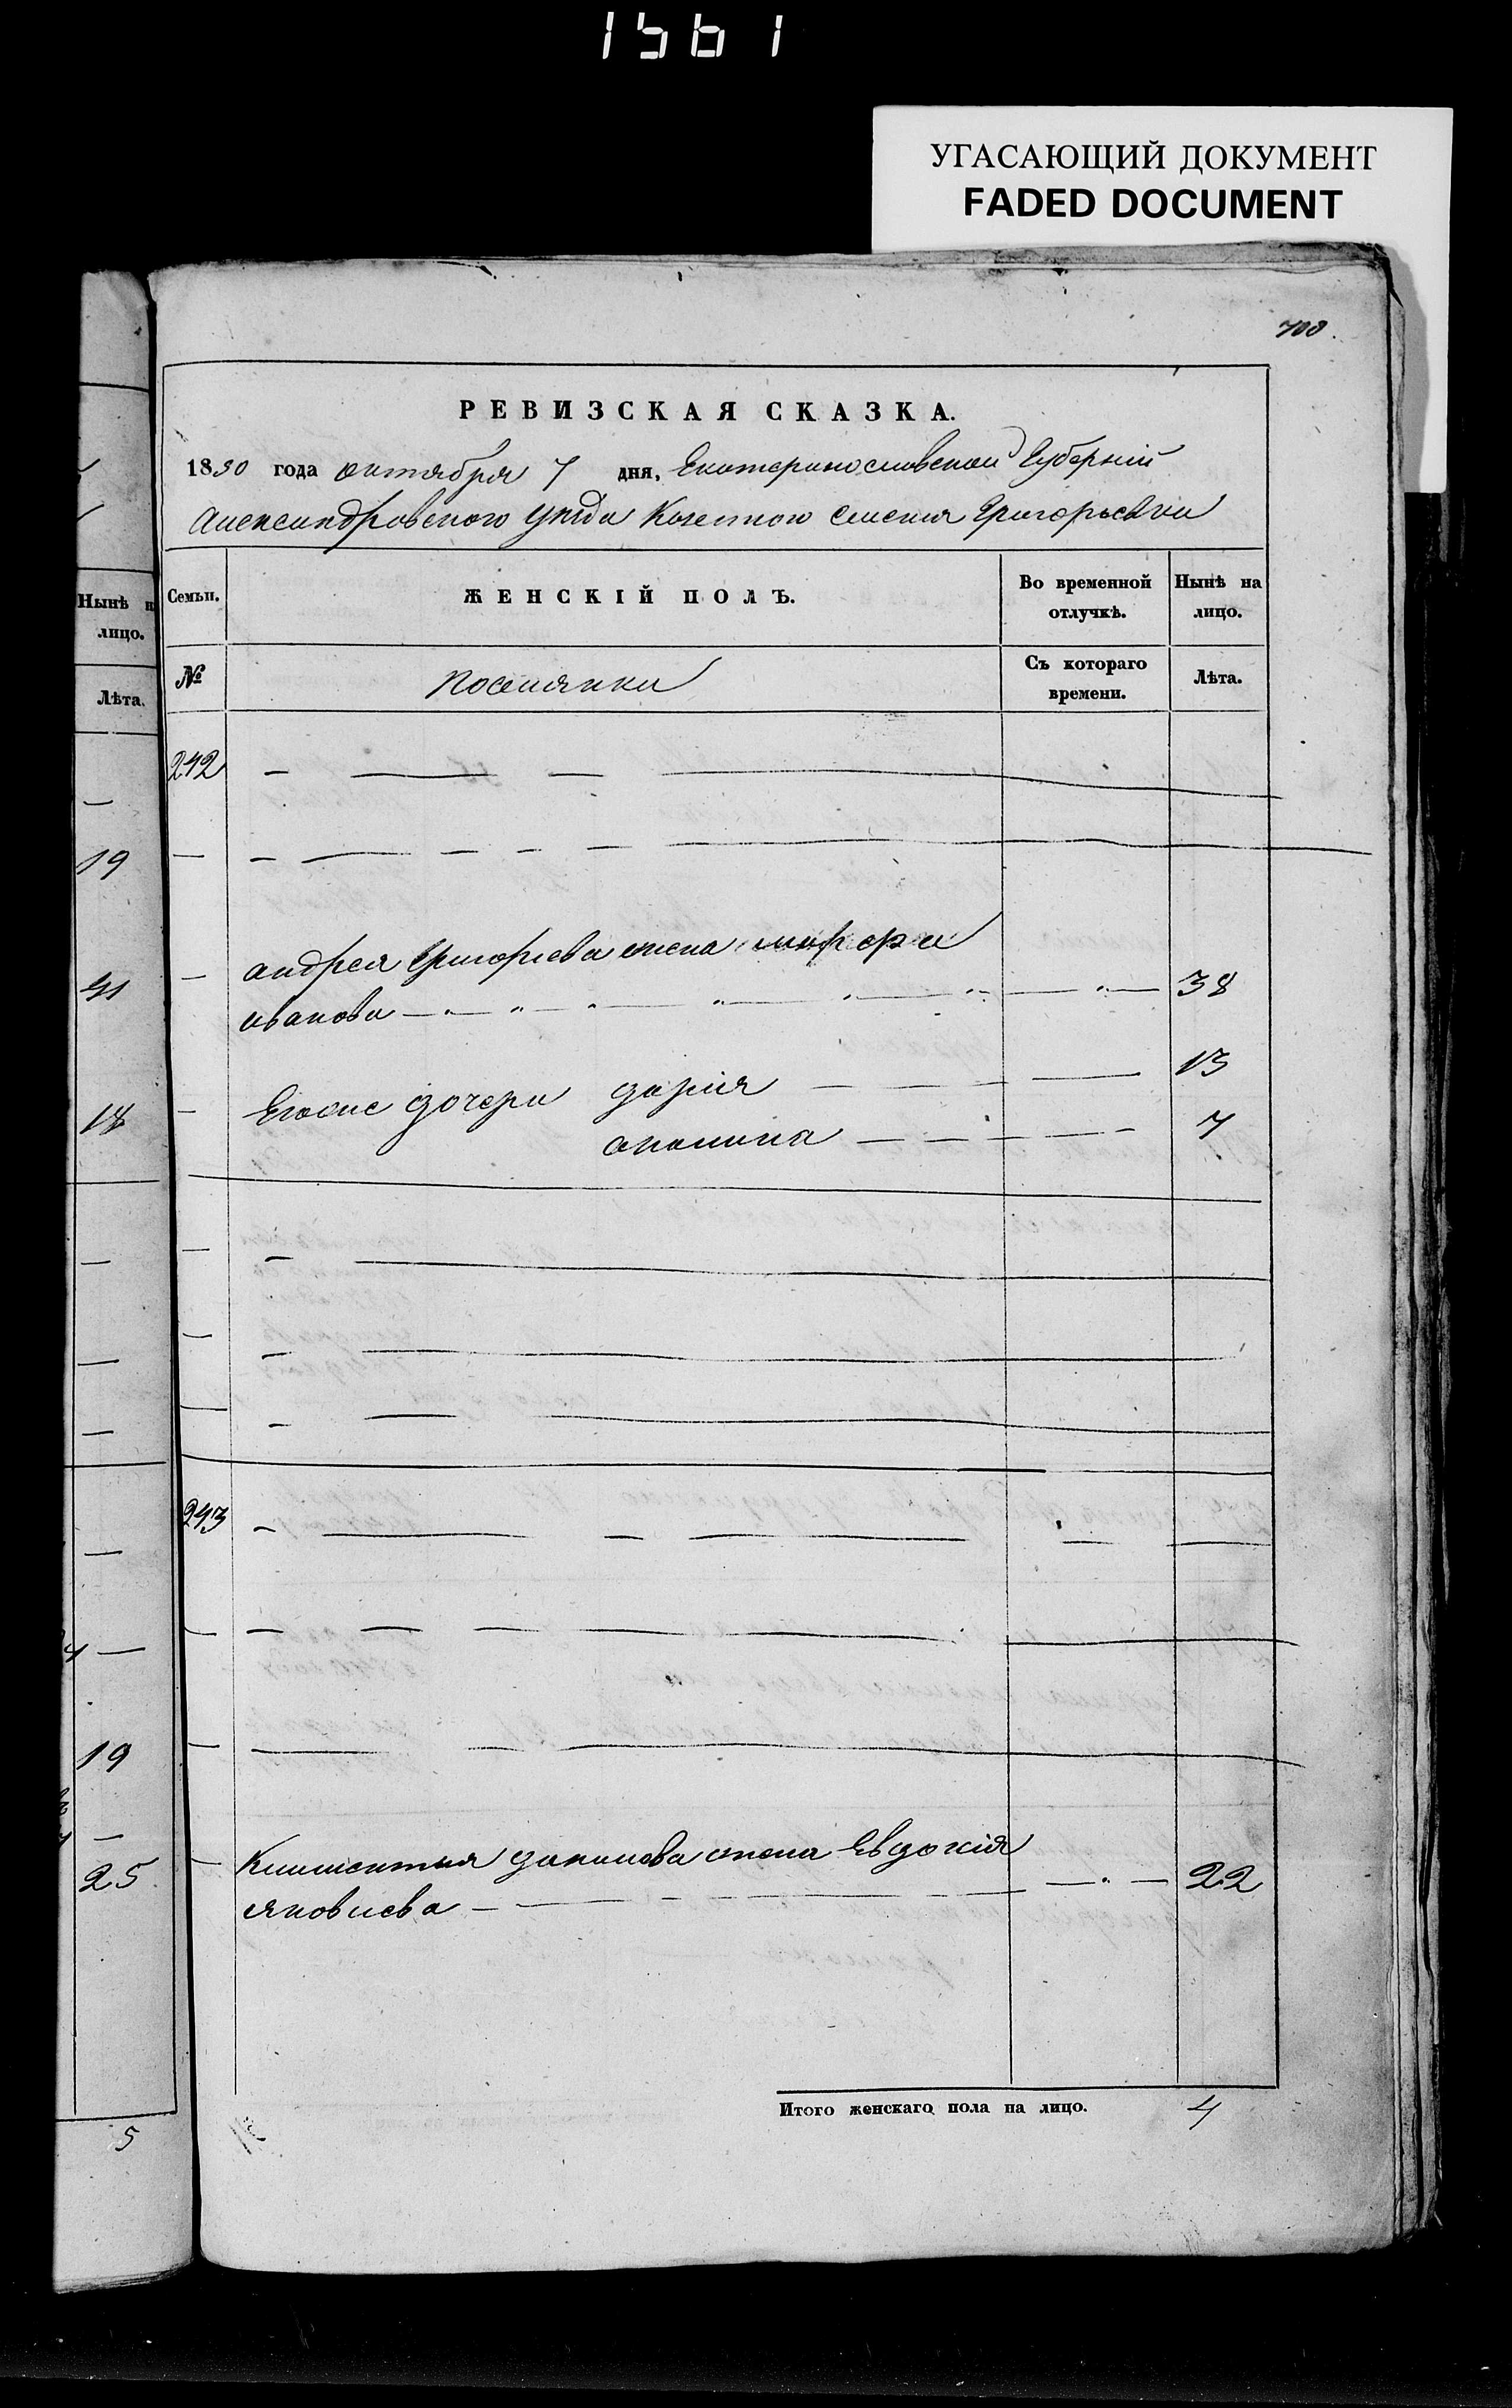 1561
УГАСАЮЩИЙ ДОКУМЕНТ
FADED DOCUMENT
708.
РЕВИЗСКАЯ СКАЗКА.
1850 года октября 7 дня, Екатеринославской Губерніи
Александровского уезда Казенного селенія Григорьевки
Нынѣ н
лицо.
Лѣта.
Семьи. ЖЕНСКІЙ ПОЛЪ. Во временной отлучкѣ. Нынѣ на лицо.
№ поселянки Съ котораго времени. Лѣта.
242 — — — —
— — — — — — —
19
— андрея Григорьева жена марфа
41
иванова — — — — — 38
— Егоже дочери дарія — — — 13
18
ананина — — — — 7
— — —
— — —
— — — —
243 — — — — — —
— — — — — —
— — — —
19
— Климентия данилова жена Евдокія
яковлева — — — — 22
25
Итого женскаго пола на лицо. 4
5